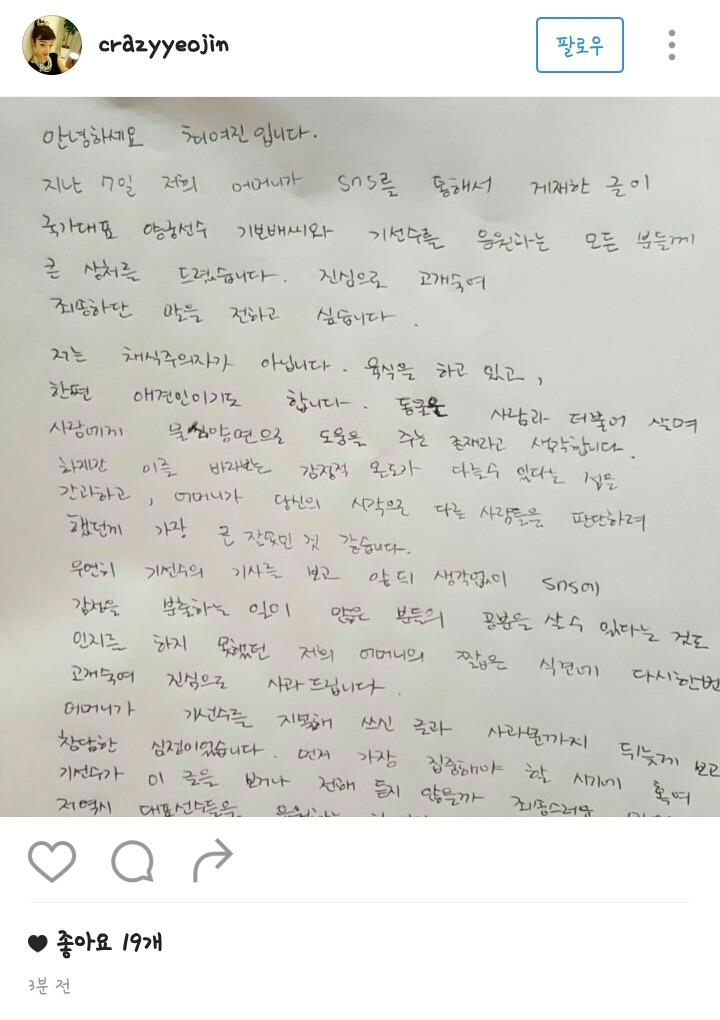 crazyyeojin
팔로우
안녕하세요 최여진입니다.
지난 7일 저희 어머니가 SNS를 통해서 게재한 글이
국가대표 양궁선수 기보배씨와 기선수를 응원하는 모든 분들께
큰 상처를 드렸습니다. 진심으로 고개숙여
죄송하단 말을 전하고 싶습니다.
저는 채식주의자가 아닙니다. 육식을 하고 있고,
한편 애견인이기도 합니다. 동물은 사람과 더불어 살며
사람에게 물심양면으로 도움을 주는 존재라고 생각합니다.
하지만 이를 바라보는 감정적 온도가 다를수 있다는 점을
간과하고, 어머니가 당신의 시각으로 다른 사람들을 판단하려
했던게 가장 큰 잘못인 것 같습니다.
우연히 기선수의 기사를 보고 앞뒤 생각없이 SNS에
감정을 분출하는 일이 많은 분들의 공분을 살수 있다는 것도
인지를 하지 못했던 저희 어머니의 짧은 식견에 다시한번
고개숙여 진심으로 사과드립니다.
어머니가 기선수를 지목해 쓰신 글과 사과문까지 뒤늦게 보고
참담한 심정이었습니다. 먼저 가장 집중해야 할 시기에 혹여
기선수가 이 글을 보거나 전해 듣지 않을까 죄송스러운
저 역시 대표선수들을 응원하는
좋아요 19개
3분 전